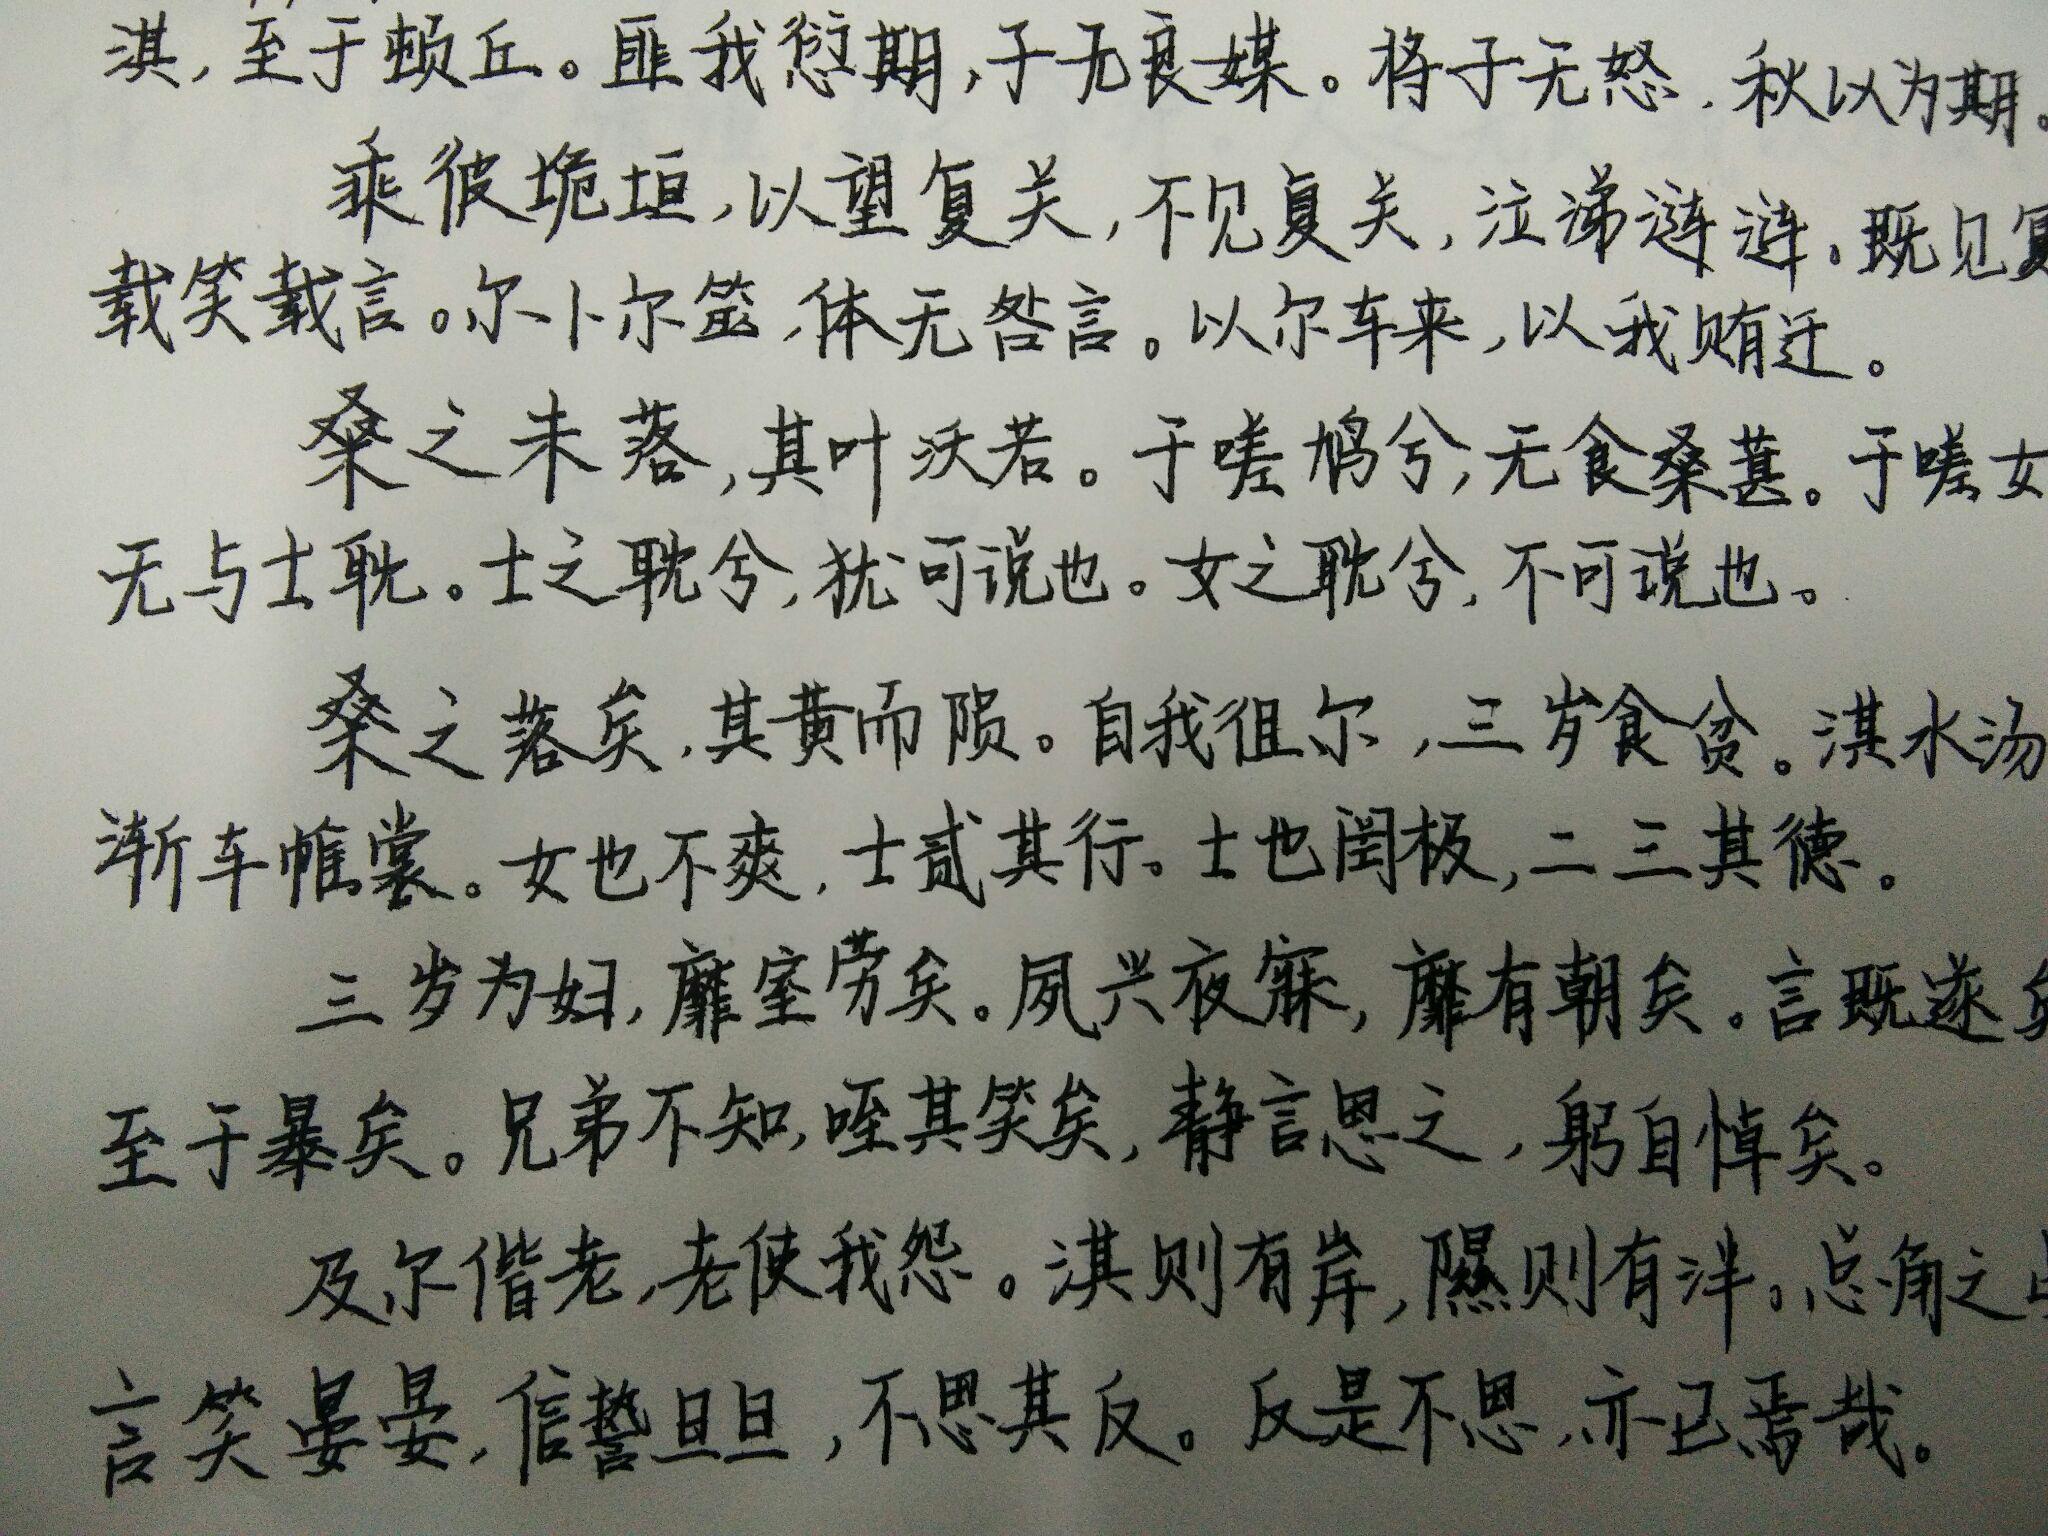 淇，至于顿丘。匪我愆期，子无良媒。将子无怒，秋以为期。
乘彼垝垣，以望复关，不见复关，泣涕涟涟。既见复
载笑载言。尔卜尔筮，体无咎言。以尔车来，以我贿迁。
桑之未落，其叶沃若。于嗟鸠兮，无食桑葚。于嗟女
无与士耽。士之耽兮，犹可说也。女之耽兮，不可说也。
桑之落矣，其黄而陨。自我徂尔，三岁食贫。淇水汤
渐车帷裳。女也不爽，士贰其行。士也罔极，二三其德。
三岁为妇，靡室劳矣。夙兴夜寐，靡有朝矣。言既遂矣
至于暴矣。兄弟不知，咥其笑矣，静言思之，躬自悼矣。
及尔偕老，老使我怨。淇则有岸，隰则有泮。总角之
言笑晏晏，信誓旦旦，不思其反。反是不思，亦已焉哉。